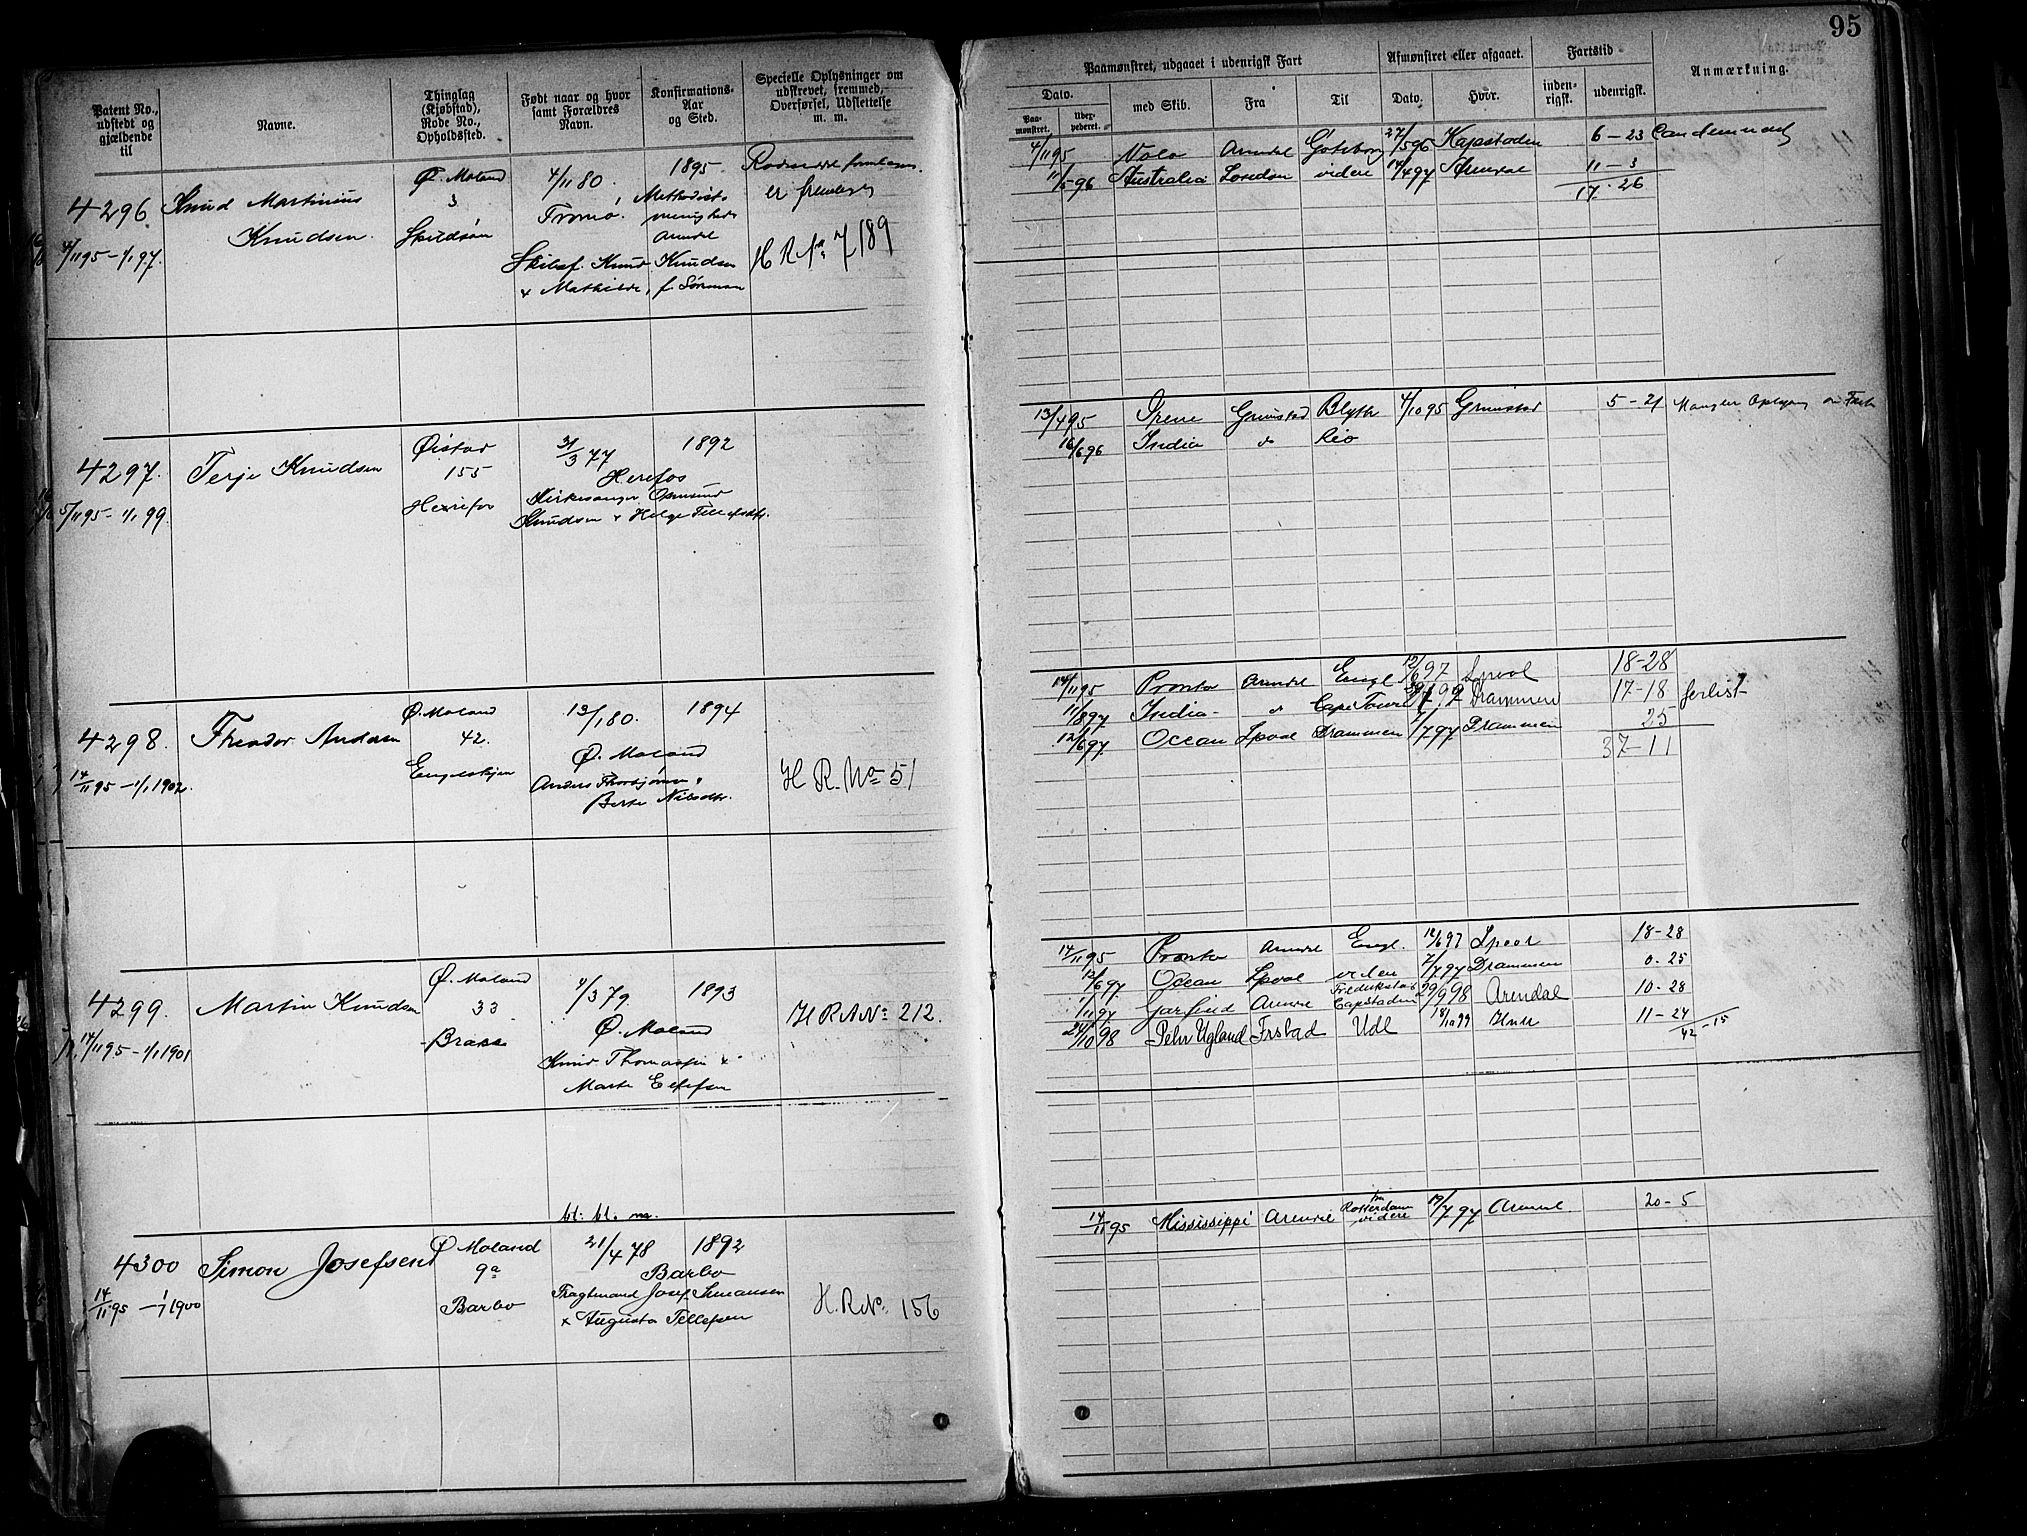 95
Patent No., udstedt og gjældende til
Navne.
Thinglag (Kjøbstad), Rode No., Opholdssted.
Født naar og hvor samt Forældres Navn.
Konfirmations-Aar og Sted.
Specielle Oplysninger om udskrevet, fremmed, Overførsel, Udslettelse m. m.
Paamønstret, udgaaet i udenrigsk Fart
Afmønstret eller afgaaet.
Fartstid
Anmærkning.
Dato.
med Skib.
Fra
Til
Dato.
Hvor.
inden-rigsk.
udenrigsk.
Paa-mønstret.
4296
4/11 95 – 1/1 97.
Knud Martinius
Knudsen.
Ø. Moland
3
4/11 80.
Tromø.
Skibsf. Knud Knudsen
+ Mathilde, f. Sørensen
1895
Methodist-
menigheds
Arendal
H R No 7189
4/11 95 Arendal Göteborg 27/5 96 Kapstaden 6 – 23 Condemneret
11/5 96 Australia London videre 14/4 97 Arendal 11 – 3
17. 26
4297.
5/11 95 – 1/1 99.
Terje Knudsen
Øistad
155
Herefos
31/3 77
1892
Herefos
Kirkesanger Osmund
Knudsen + Helge Tellefsdtr.
13/4 95 Irene Grimstad Blyth 4/10 95 Grimstad 5 – 21 Mangler Oplysng om Fart
16/6 96 India do Rio
4298.
14/11 95 – 1/1 1902.
Theodor Andersen
Ø. Moland
42.
13/1 80.
1894
Ø. Moland
Anders Thorbjørnsen +
Berte Nilsdtr.
H R. No 51
14/11 95 Pronto Arendal Engl 12/6 97 Lpool 18-28
11/8 97 India do Cape Town Drammen 17-18 forlist
12/6 97 Ocean Lpool Drammen 7/7 97 Drammen 25
37-11
4299.
14/11 95 – 1/1 1901
Martin Knudsen
Ø. Moland
33
1893
Ø. Moland
Knud Thomassen +
Marte Ellefsen
H R A No 212.
14/11 95 Pronto Arendal Engl. 12/6 97 Lpool 18-28
12/6 97 Ocean Lpool videre 7/7 97 Drammen 0. 25
1/11 97 Garfield Arendal Fredrikstad Capstaden 29/9 98 Arendal 10-28
24/10 98 Pehr Ugland Frstad Udl 18/10 99 Hull 11-24
42-15
4300
14/11 95 – 1/1 1900
Simon Josefsen
Ø Moland
9a
Barbo
bl. bl. m.
21/4 78
1892
Barbo
Fragtmand Josef Simonsen
+ Augusta Tellefsen
H. R. No. 156
14/11 95 Mississippi Arendal fra Rotterdam videre 19/7 97 Arendal 20-5